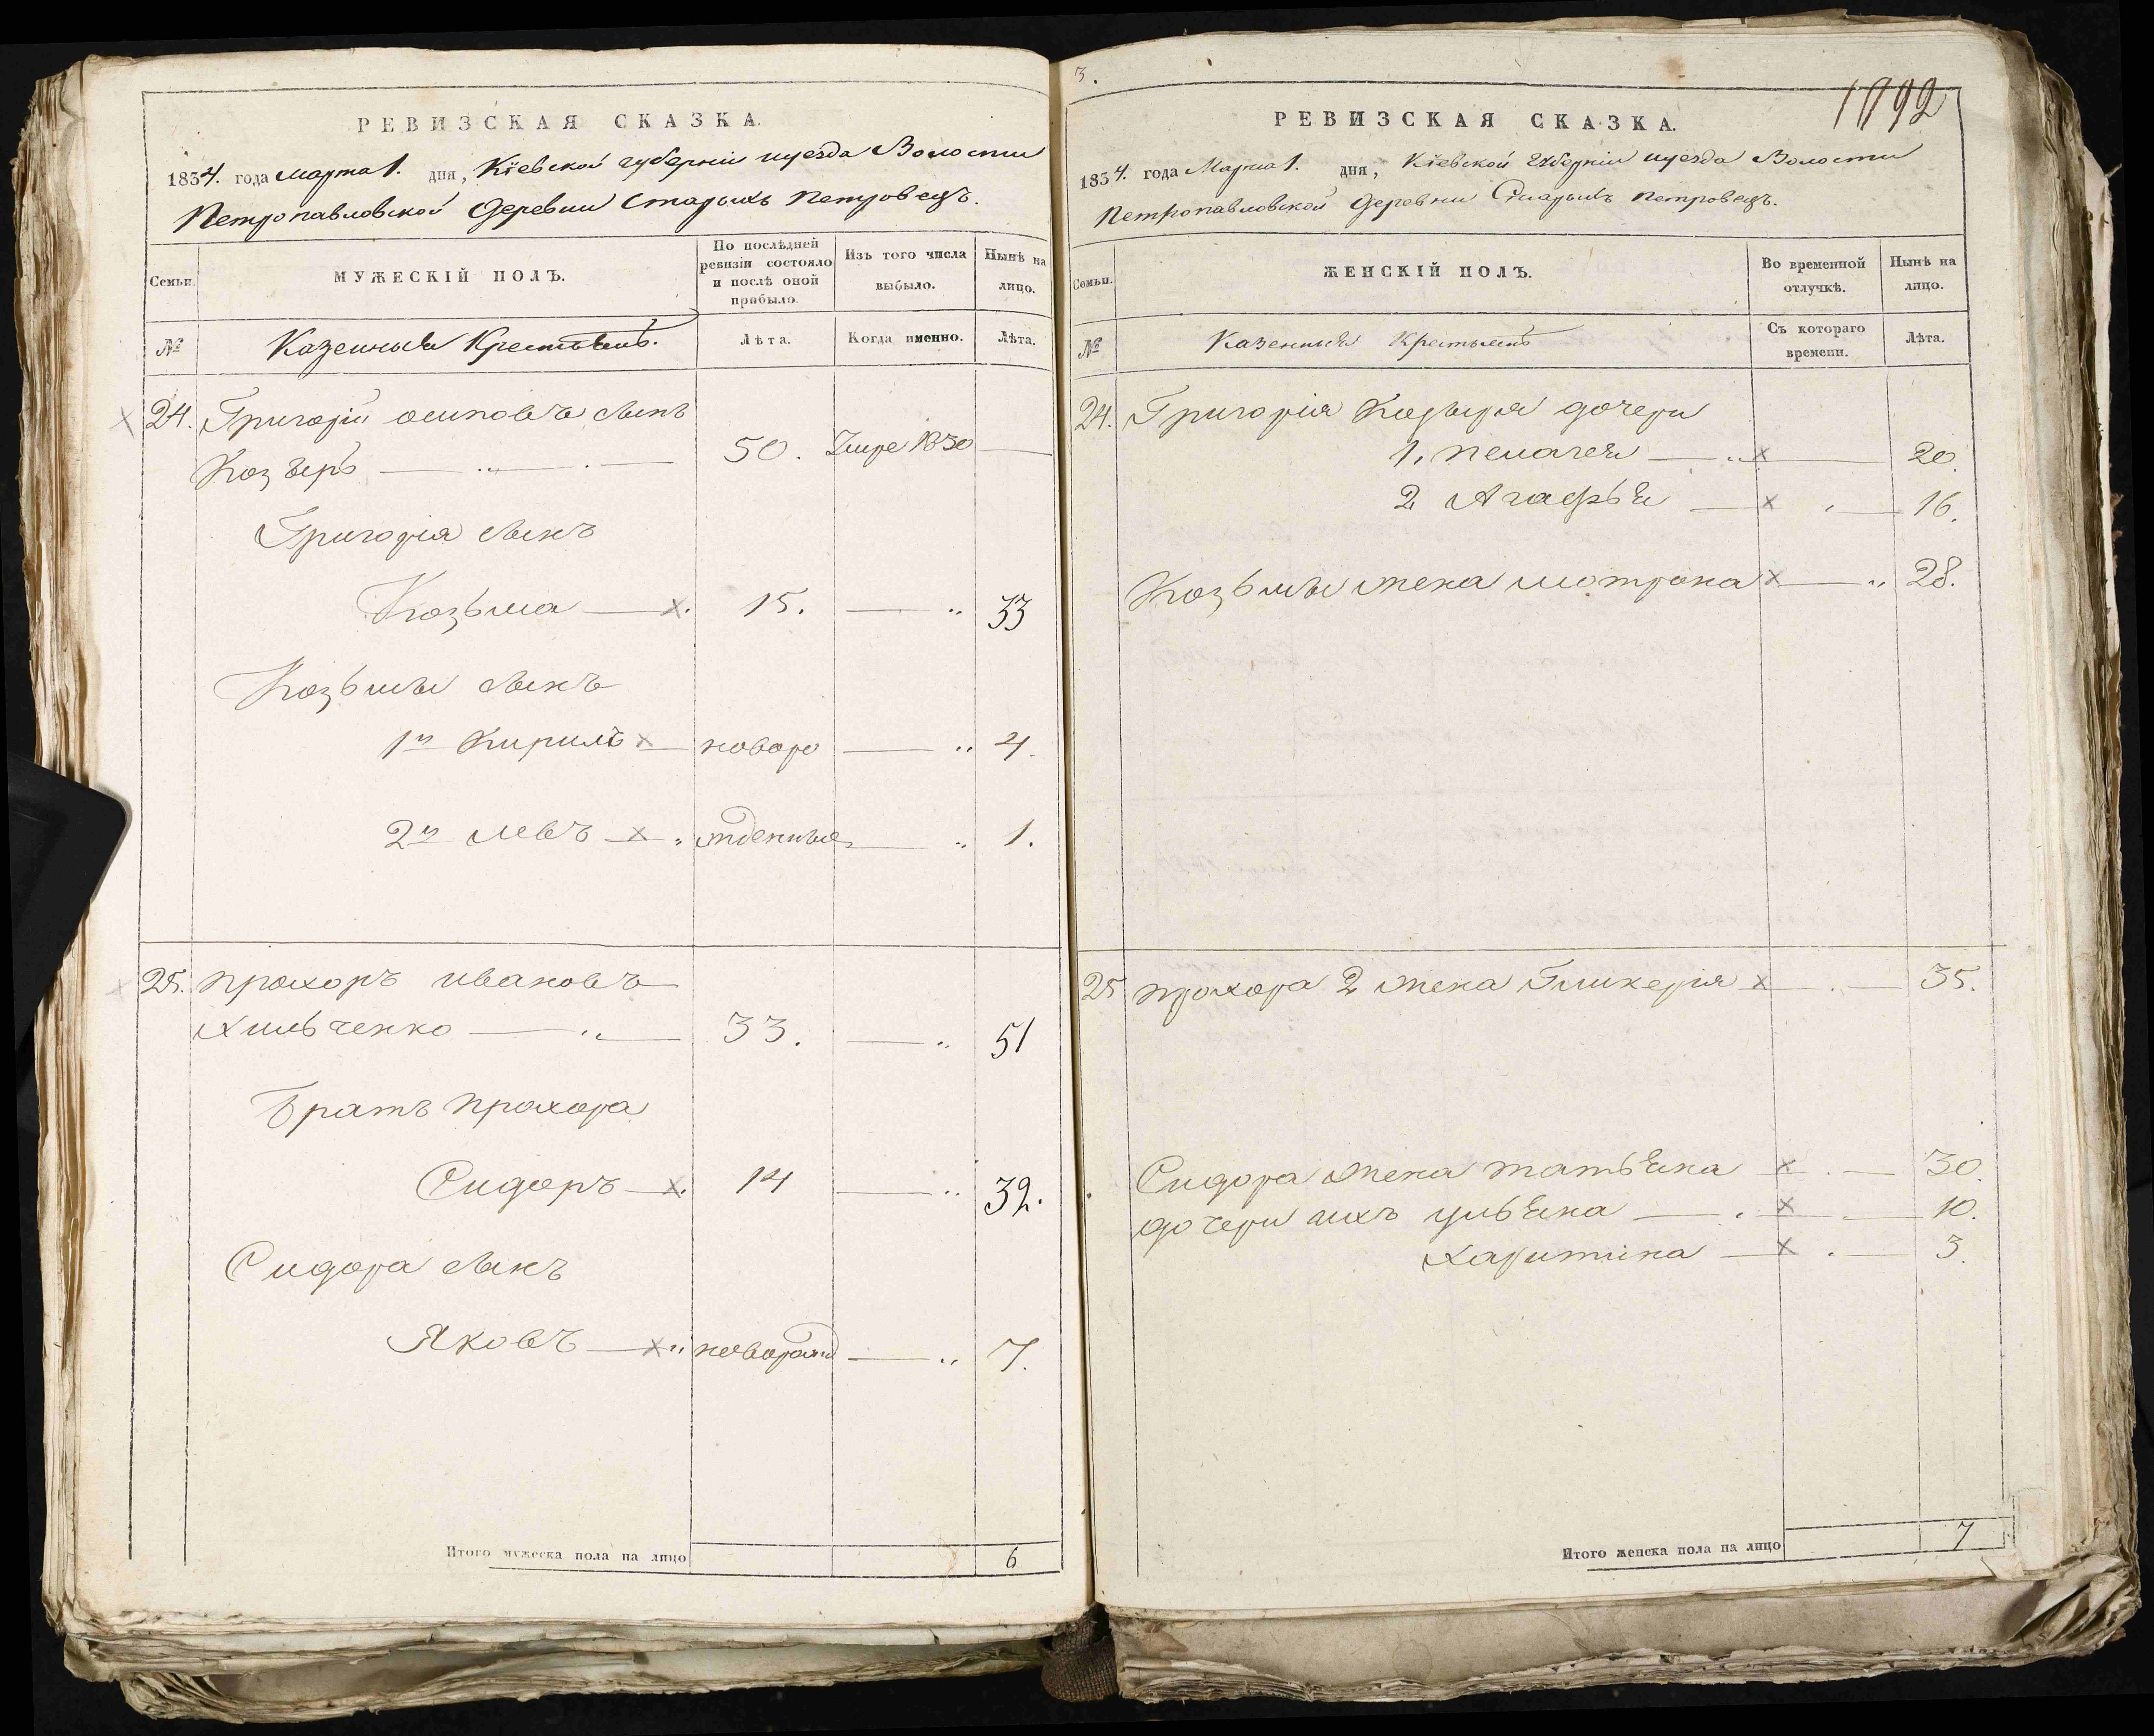 РЕВИЗСКАЯ СКАЗКА.
1834. года Марта 1. дня, Кіевской губерніи и уезда Волости
Петропавловской деревни Старыхъ Петровецъ.
Семьи.
МУЖЕСКІЙ ПОЛЪ.
По послѣдней ревизіи состояло и послѣ оной прибыло.
Изъ того числа выбыло.
Нынѣ на лицо.
№
Казенныя Крестьяне.
Лѣта.
Когда именно.
Лѣта.
24. Григорій осиповъ сынъ
Козыръ 50. Умре 1830
Григорія сынъ
Козьма 15. 33
Козьмы сынъ
1й Кирилъ новоро 4.
2й Левъ жденные 1.
25. прохоръ ивановъ
хильченко 33. 51
братъ прохора
Сидоръ 14 32.
Сидора сынъ
Яковъ 7.
Итого мужеска пола на лицо 6
3.
1892
РЕВИЗСКАЯ СКАЗКА.
1834. года Марта 1. дня, Кіевской Губерніи и уезда Волости
Петропавловской деревни Старыхъ Петровецъ.
Семьи.
ЖЕНСКІЙ ПОЛЪ.
Во временной отлучкѣ.
Нынѣ на лицо.
№
Казенныя Крестьяне
Съ котораго времени.
Лѣта.
24. Григорія Козыря дочери
1, пелагея 20.
2 Агафья 16.
Козьмы жена мотрона 28.
25 прохора 2 жена Гликерія 35.
Сидора жена татьяна 30.
дочери ихъ ульяна 10.
харитина 3.
Итого женска пола на лицо 7